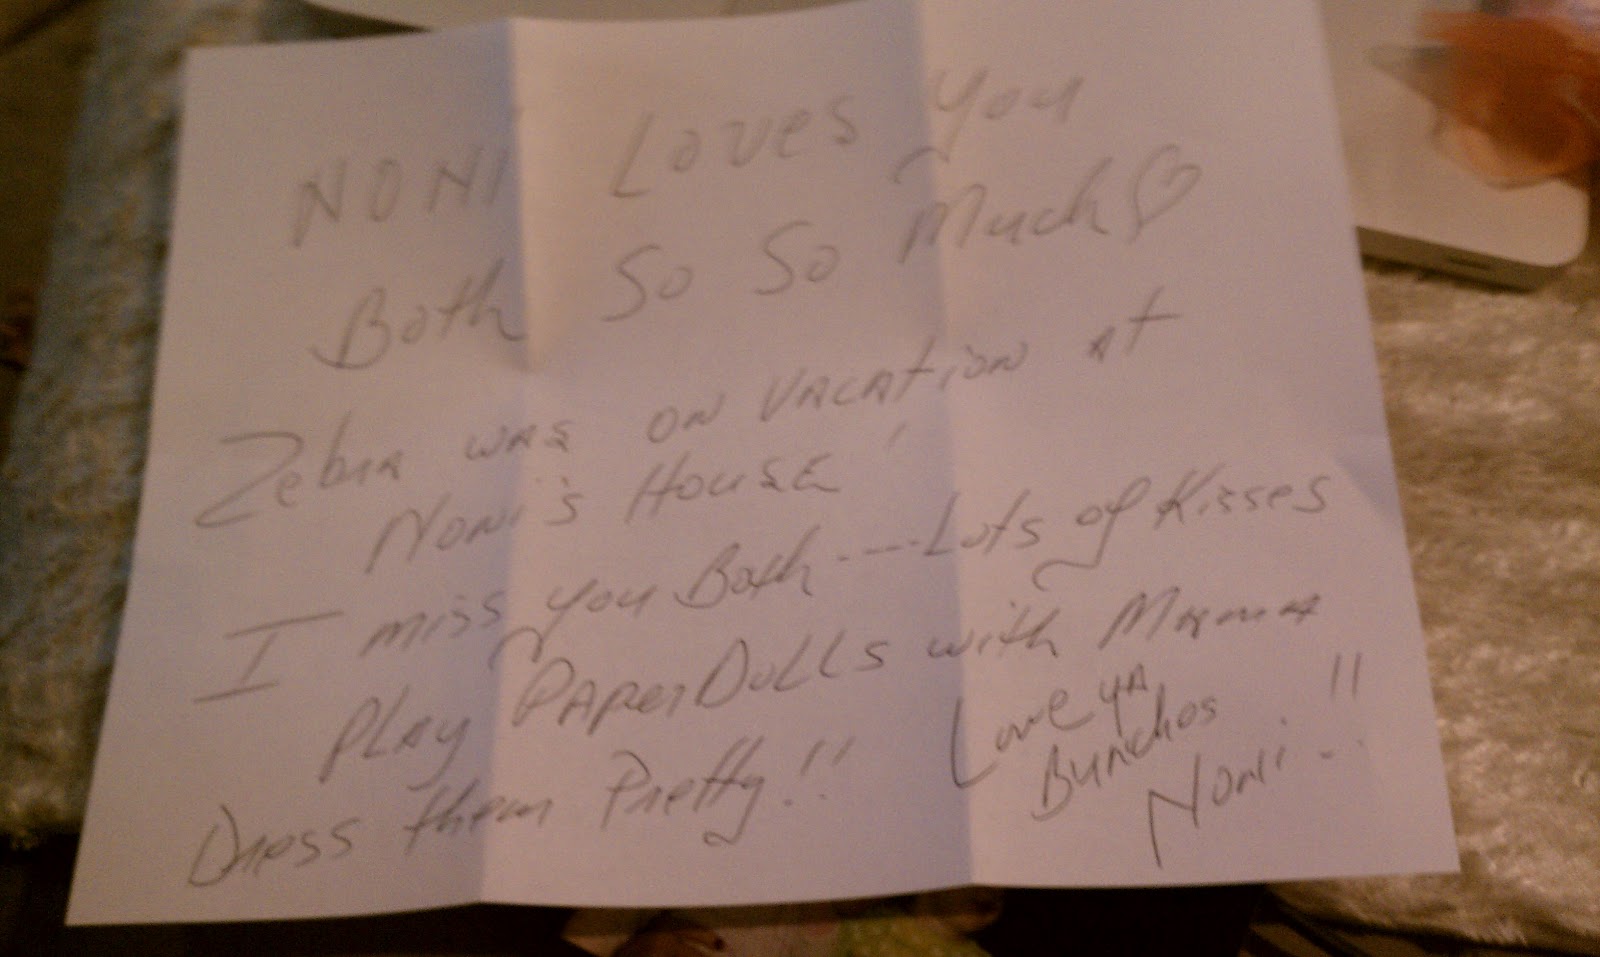 NONI Loves you
Both So So Much ♡
Zebra was on vacation at
Noni's House!
I miss you Both ---- Lots of Kisses
Play PaperDolls with Mama
Dress them Pretty!!
Love ya
Bunches
Noni!!